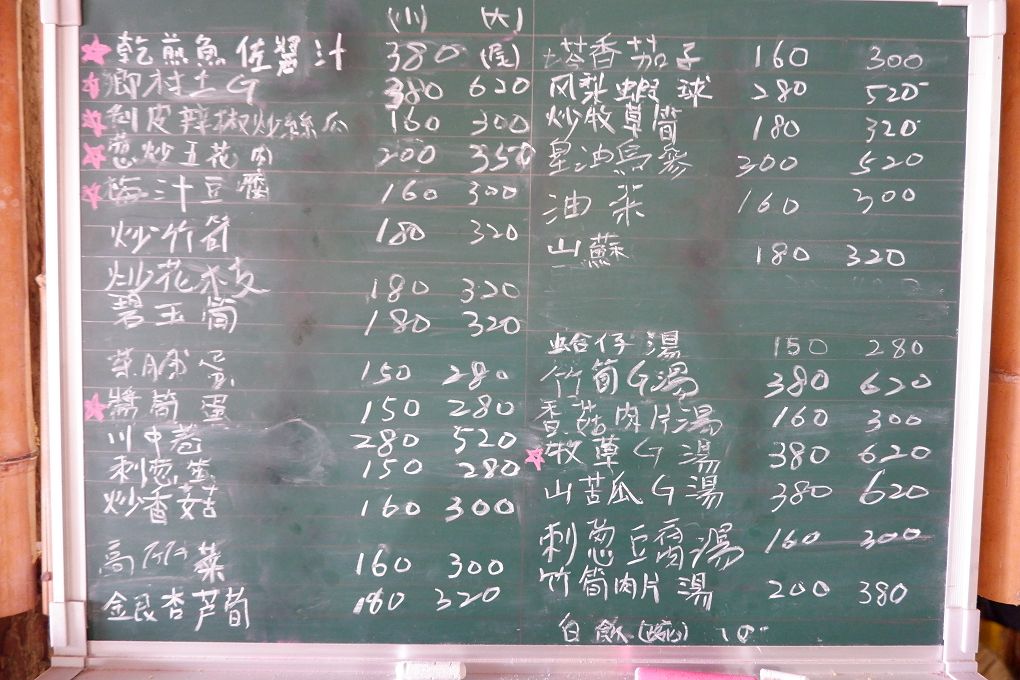 (小) (大)
乾煎魚佐醬汁 380 (尾)
鄉村土G 380 620
剝皮辣椒炒絲瓜 160 300
蔥炒五花肉 200 350
梅汁豆腐 160 300
炒竹筍 180 320
炒花木支 180 320
碧玉筍 180 320
菜脯蛋 150 280
醬筍蛋 150 280
川中卷 280 520
刺蔥蛋 150 280
炒香菇 160 300
高麗菜 160 300
銀杏芦筍 180 320
塔香茄子 160 300
凤梨蝦球 280 520
炒牧草筍 180 320
皇油烏參 300 520
油菜 160 300
山蘇 180 320
蛤仔湯 150 280
竹筍G湯 380 620
香菇肉片湯 160 300
牧草G湯 380 620
山苦瓜G湯 380 620
刺蔥豆腐湯 160 300
竹筍肉片湯 200 380
白飯(碗) 10